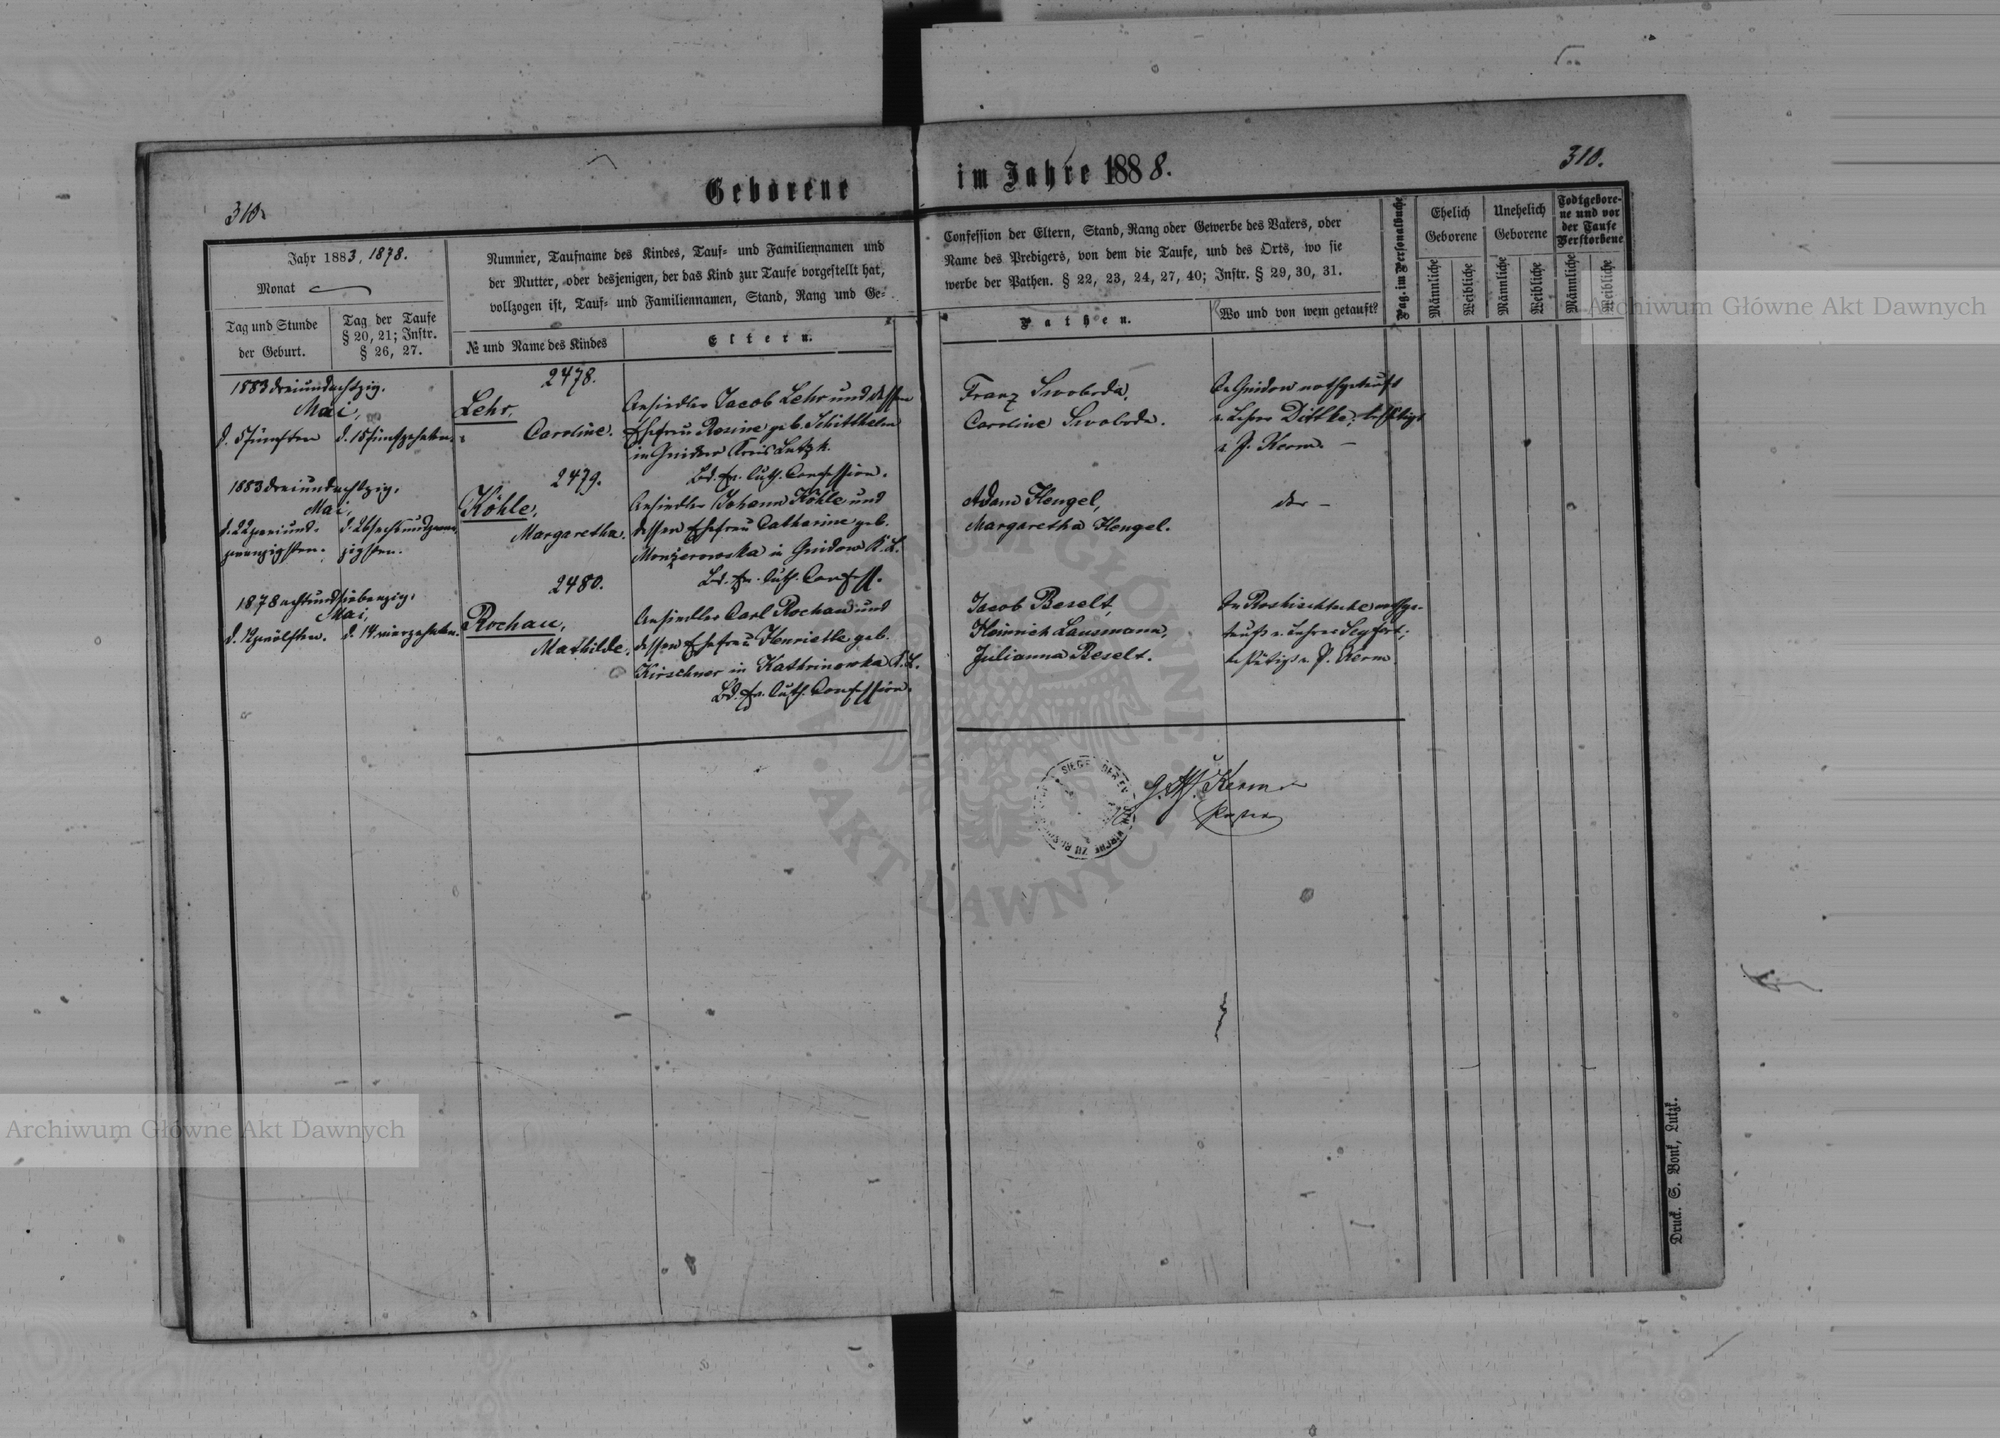 Geborene im Jahre 1888.
310.
310.
Jahr 1883, 1878.
Monat
Tag und Stunde
der Geburt.
Tag der Taufe
§ 20, 21; Instr.
§ 26, 27.
Nummer, Taufname des Kindes, Tauf- und Familiennamen und
der Mutter, oder desjenigen, der das Kind zur Taufe vorgestellt hat,
vollzogen ist, Tauf- und Familiennamen, Stand, Rang und Ge-
№ und Name des Kindes
Eltern.
Confession der Eltern, Stand, Rang oder Gewerbe des Vaters, oder
Name des Predigers, von dem die Taufe, und des Orts, wo sie
werbe der Pathen. § 22, 23, 24, 27, 40; Instr. § 29, 30, 31.
Pathen.
Wo und von wem getauft?
Pag. im Personalbuche
Ehelich
Geborene
Unehelich
Geborene
Todtgebore-
ne und vor
der Taufe
Verstorbene
Männliche
Weibliche
Männliche
Weibliche
Männliche
Weibliche
1883 dreiundachtzig.
Mai,
d. 5 fünften
d. 15 fünfzehnten
2478.
Lehr,
Caroline.
Ansiedler Jacob Lehr und dessen
Ehefrau Rosine geb. Schitthelm
in Gnidow Kreis Lutzk.
Bd. Ev. Luth. Confession.
Franz Swoboda,
Caroline Swoboda.
In Gnidow nothgetauft
v. Lehrer Dittke; bestätigt
v. P. Kerm. –
1883 dreiundachtzig,
Mai,
d. 22 zweiund-
zwanzigsten.
d. 26 sechsundzwan-
zigsten.
2479.
Köhle,
Margaretha.
Ansiedler Johann Köhle und
dessen Ehefrau Catharine geb.
in Gnidow K. L.
Bd. Ev. Luth. Confess.
Adam Hengel,
Margaretha Hengel.
1878 achtundsiebenzig,
Mai,
d. 12 zwölften.
d. 14 vierzehnten.
2480.
Rochau,
Mathilde.
Ansiedler Carl Rochau und
dessen Ehefrau Henriette geb.
Kirschner in Kathrinowka K. L.
Bd. Ev. Luth. Confession.
Jacob Beselt,
Heinrich Lausmann,
Julianna Beselt.
In nothge-
tauft v. Lehrer
bestätigt v. P. Kerm
Kerm
Pastor
Druck. S. Bonk, Lutzk.
Archiwum Główne Akt Dawnych
Archiwum Główne Akt Dawnych